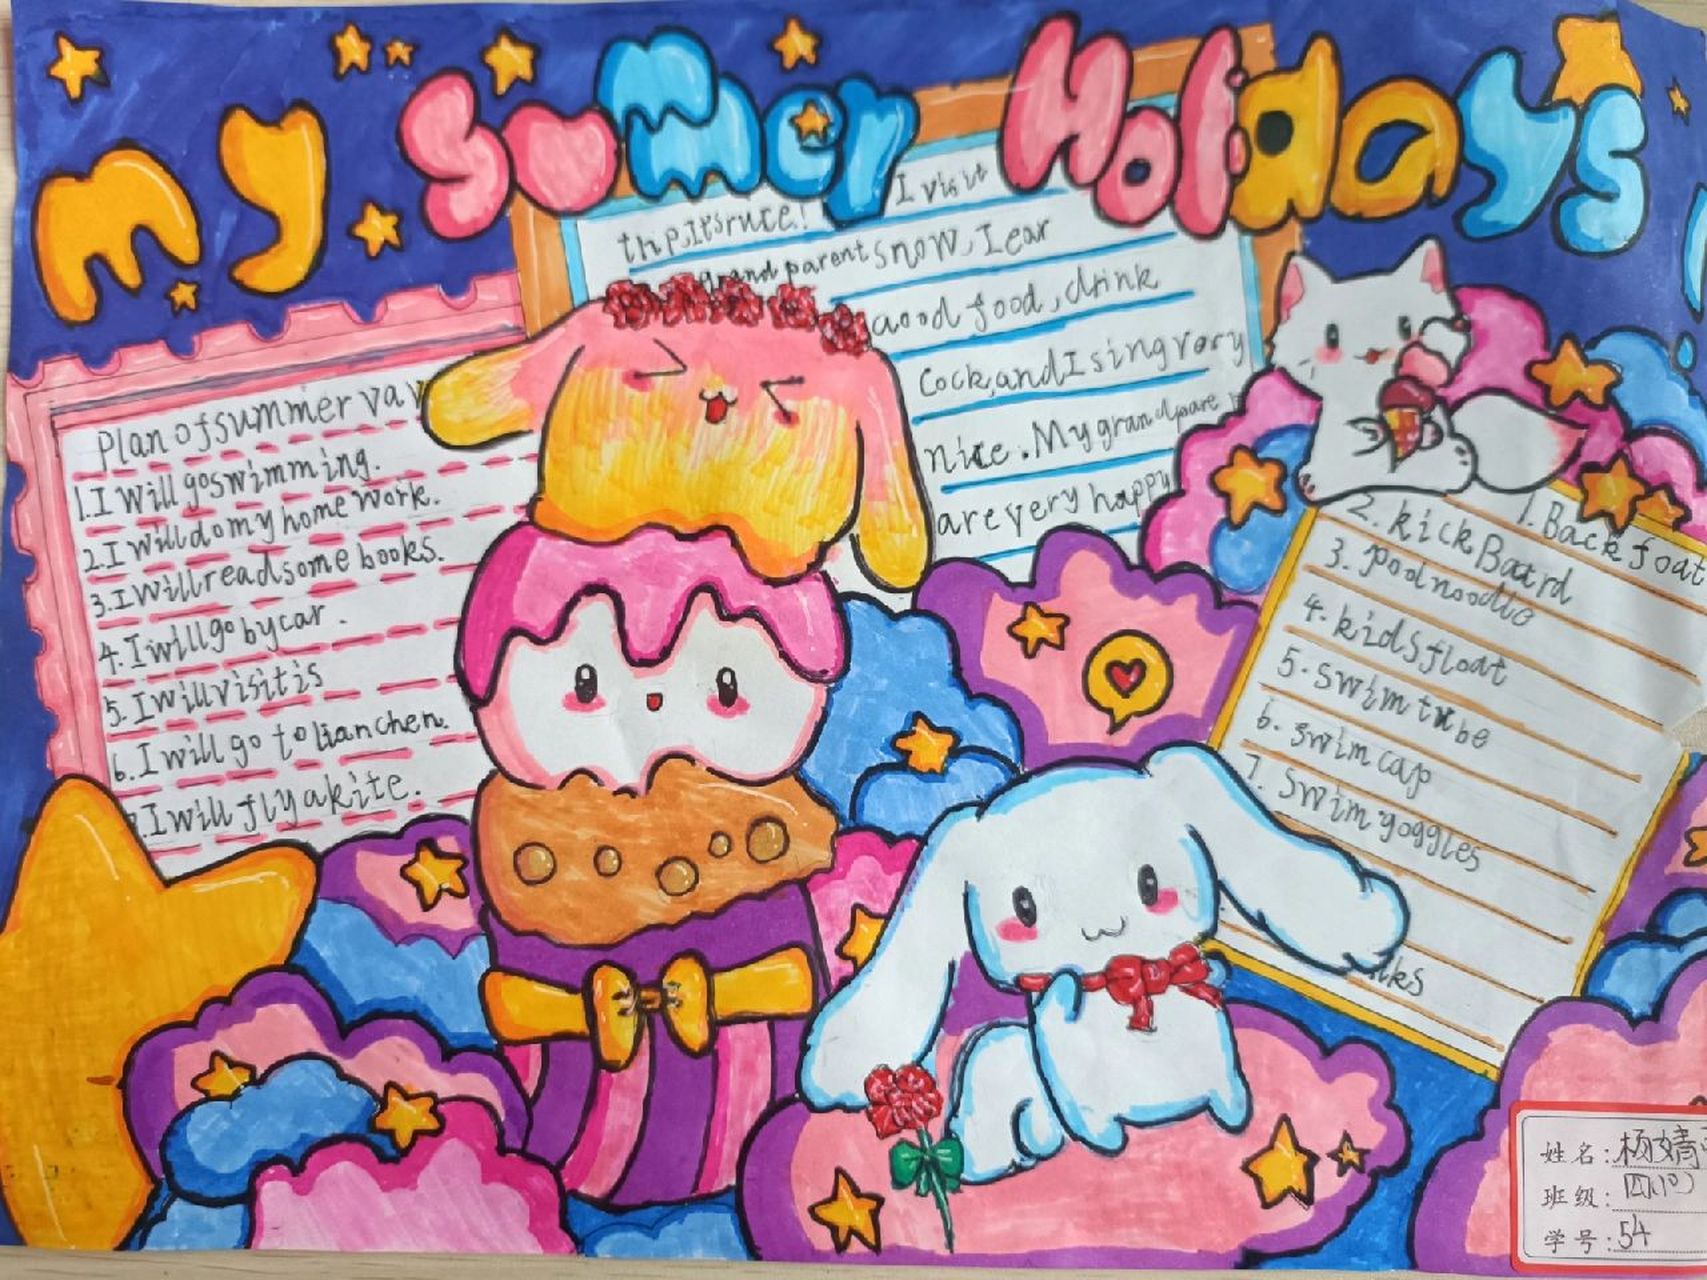 my Sumer Holidays
Plan of summer vav
1.I Will go swimming.
2.I will do my home work.
3.I will read some books.
4.I will go by car.
5.I will visit is
6.I will go to lian chen.
.I will fly a kite.
I visit
grand parent snow, I ear
aood food, drink
Cock, and I sing vary
nice. My grand pare
are very happy
1. Back foat
2. kick Batrd
3. pool noodle
4. kids float
5. swim tube
6. swim cap
7. swim goggles
lks
姓名:杨婧
班级:四(10)
学号:54